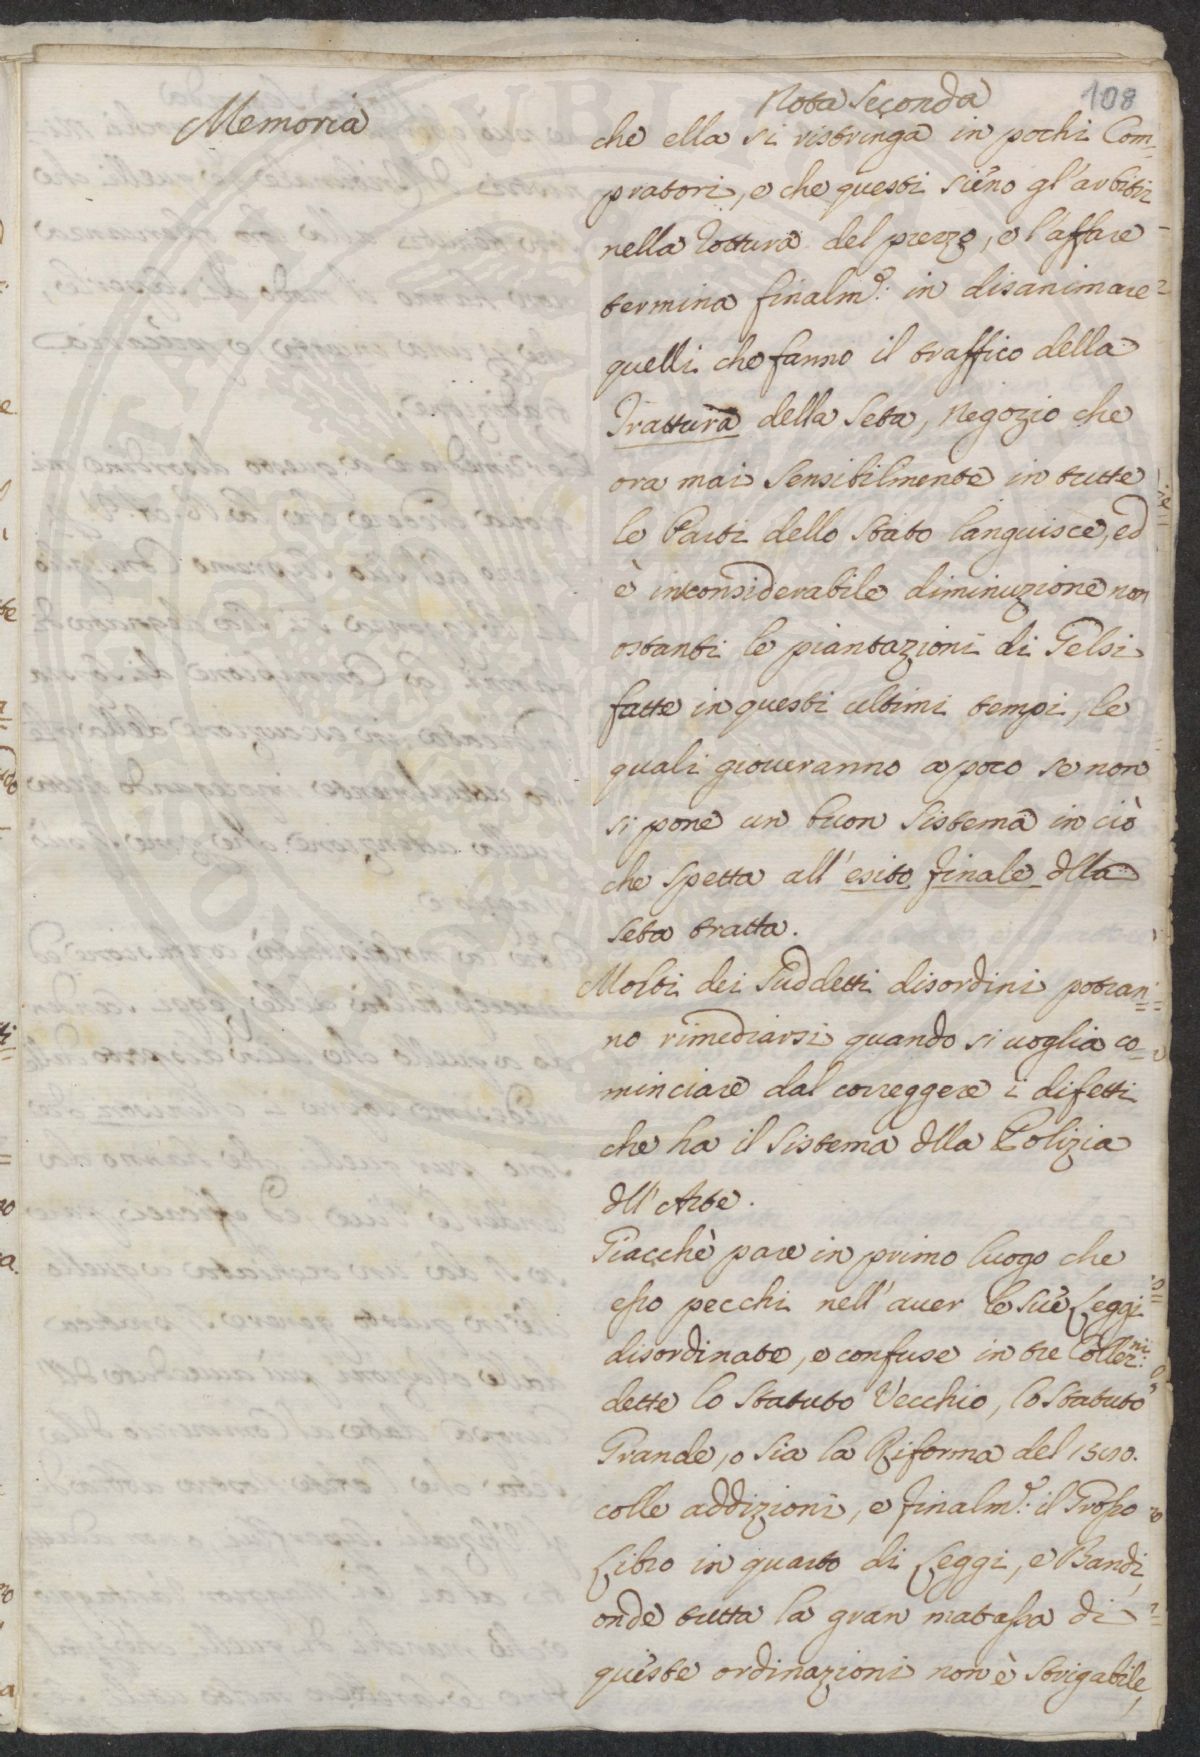 Memoria
Nota Seconda
108
che ella si ristringa in pochi Com=
pratori, e che questi sieno gl'arbitri
nella Rottura del prezzo, e l'affare
termina finalm.e: in disanimare
quelli che fanno il traffico della
Trattura della Seta, Negozio che
ora mai sensibilmente in tutte
le Parti dello Stato languisce, ed
è inconsiderabile diminuzione non
ostanti le piantazioni di Gelsi
fatte in questi ultimi tempi, le
quali gioveranno a poco se non
si pone un buon Sistema in ciò
che spetta all'esito finale dlla
Seta tratta.
Molti dei Suddetti disordini potran=
no rimediarsi quando si voglia co=
minciare dal correggere i difetti
che ha il Sistema dlla Polizia
dll'Arte.
Giacchè pare in primo luogo che
esso pecchi nell'aver le sue Leggi
disordinate, e confuse in tre Collez.ni:
dette lo Statuto Vecchio, lo Statuto
Grande, o sia la Riforma del
colle addizioni, e finalm.e: il Grosso
Libro in quarto di Leggi, e Bandi,
onde tutta la gran matassa di
queste ordinazioni non è strigabile,